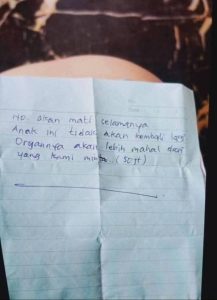 No. akan mati selamanya
Anak ini tidak akan kembali lagi
Organnya akan lebih mahal dari
yang kami minta. (50jt)